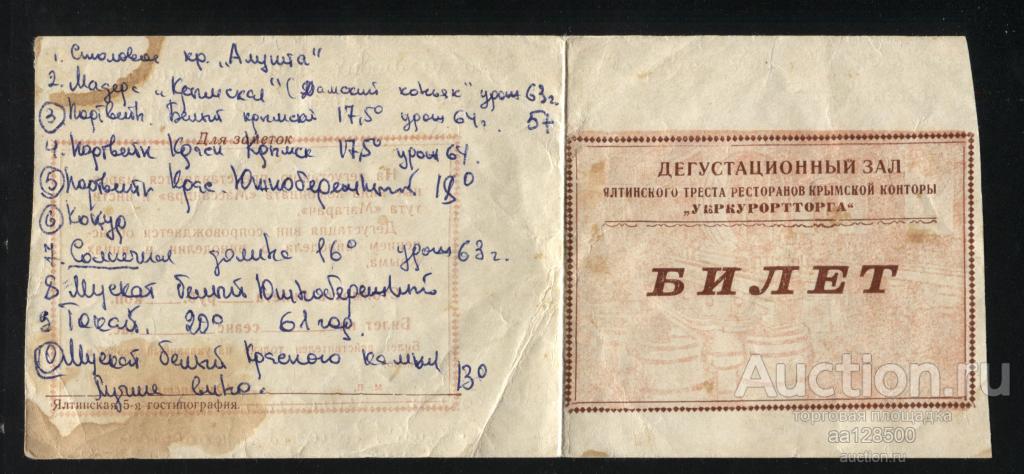 1. Столовое кр. „Алушта"
2. Мадера „Крымская" (Дамский коньяк" урож 63 г.
3 Портвейн. Белый крымский 17,5° урож 64 г. 57
Для заметок
4. Портвейн Красн Крымск 17,5° урож 64.
5 Портвейн Крас. Южнобережный 18°
6 Кокур
7. Солнечная долина 16° урож 63 г.
8 Мускат белый Южнобережный
9 Токай. 20° 61 год.
10 Мускат белый Красного камня 13°
Лучшее вино.
Ялтинская 5-я гостипография.
ДЕГУСТАЦИОННЫЙ ЗАЛ
ЯЛТИНСКОГО ТРЕСТА РЕСТОРАНОВ КРЫМСКОЙ КОНТОРЫ
„УКРКУРОРТТОРГА"
БИЛЕТ
Auction.ru
торговая площадка
aa128500
auction.ru